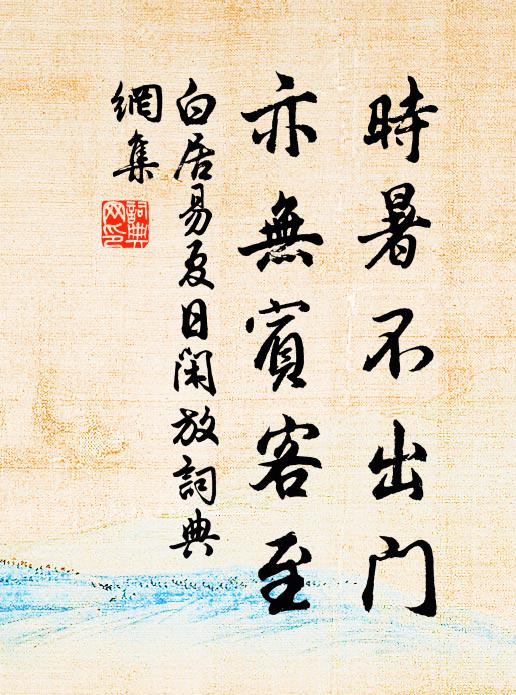 時暑不出門
亦無賓客至
白居易夏日閑放詞典
網集
詞典
网印